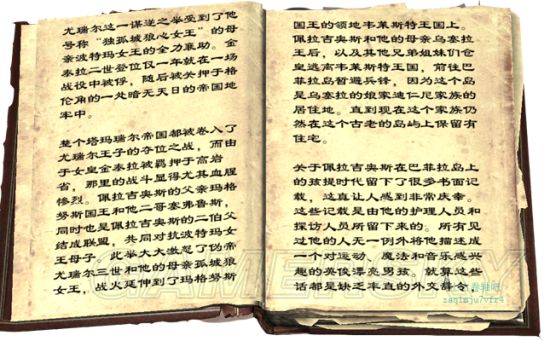 尤瑞尔这一谋逆之举受到了他
号称“独孤城狼心女王”的母
亲波特玛女王的全力襄助。金
泰拉二世登位仅一年就在一场
战役中被俘，随后被关押于格
伦角的一处暗无天日的帝国地
牢中。
整个塔玛瑞尔帝国都被卷入了
尤瑞尔王子的夺位之战，而由
于女皇金泰拉被羁押于高岩
省，那里的战斗显得尤其血腥
惨烈。佩拉吉奥斯的父亲玛格
努斯国王和他二哥塞弗鲁斯，
同时也是佩拉吉奥斯的二伯父
结成联盟，共同对抗波特玛女
王母子。此举大大激怒了伪帝
尤瑞尔三世和他的母亲孤城狼
女王，战火延伸到了玛格努斯
国王的领地韦莱斯特王国上。
佩拉吉奥斯和他的母亲乌塞拉
王后，以及其他兄弟姐妹们仓
皇逃离韦莱斯特王国，前往巴
菲拉岛暂避兵锋，因为这个岛
是乌塞拉的娘家迪仁尼家族的
居住地。直到现在这个家族仍
然在这个古老的岛屿上保留有
住宅。
关于佩拉吉奥斯在巴菲拉岛上
的孩提时代留下了很多书面记
载，这真让人感到非常庆幸。
这些记载是由他的护理人员和
探访人员所留下来的。所有见
过他的人无一例外将他描述成
一个对运动、魔法和音乐感兴
趣的英俊漂亮男孩，就算这些
话都是缺乏率直的外交辞令，